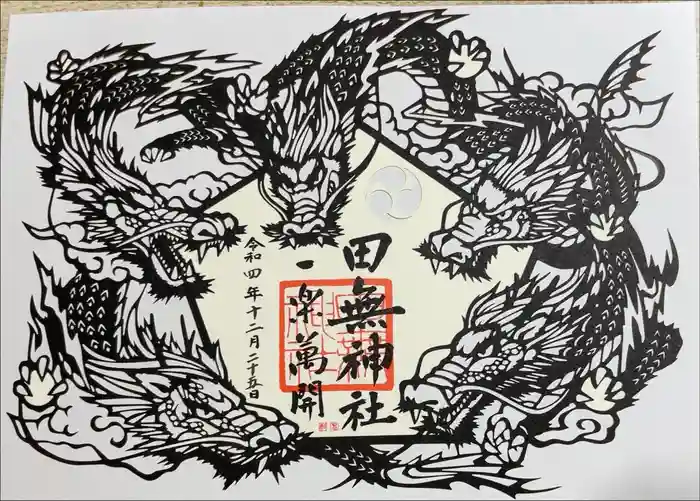 田無神社
一楽萬開
令和四年十二月二十五日